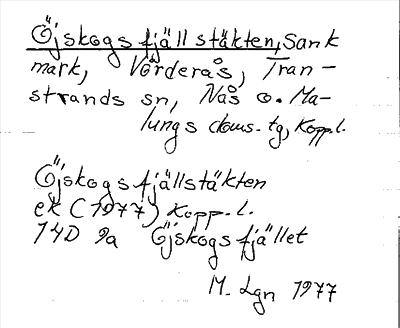 Öjskogsfjällstäkten, Sank
mark, Vörderås, Tran-
strands sn, Nås o. Ma-
lungs doms-tg, Kopp.l.
Öjskogsfjällstäkten
ek (1977) Kopp.l.
14D 9a Öjskogsfjället
M. Lgn 1977